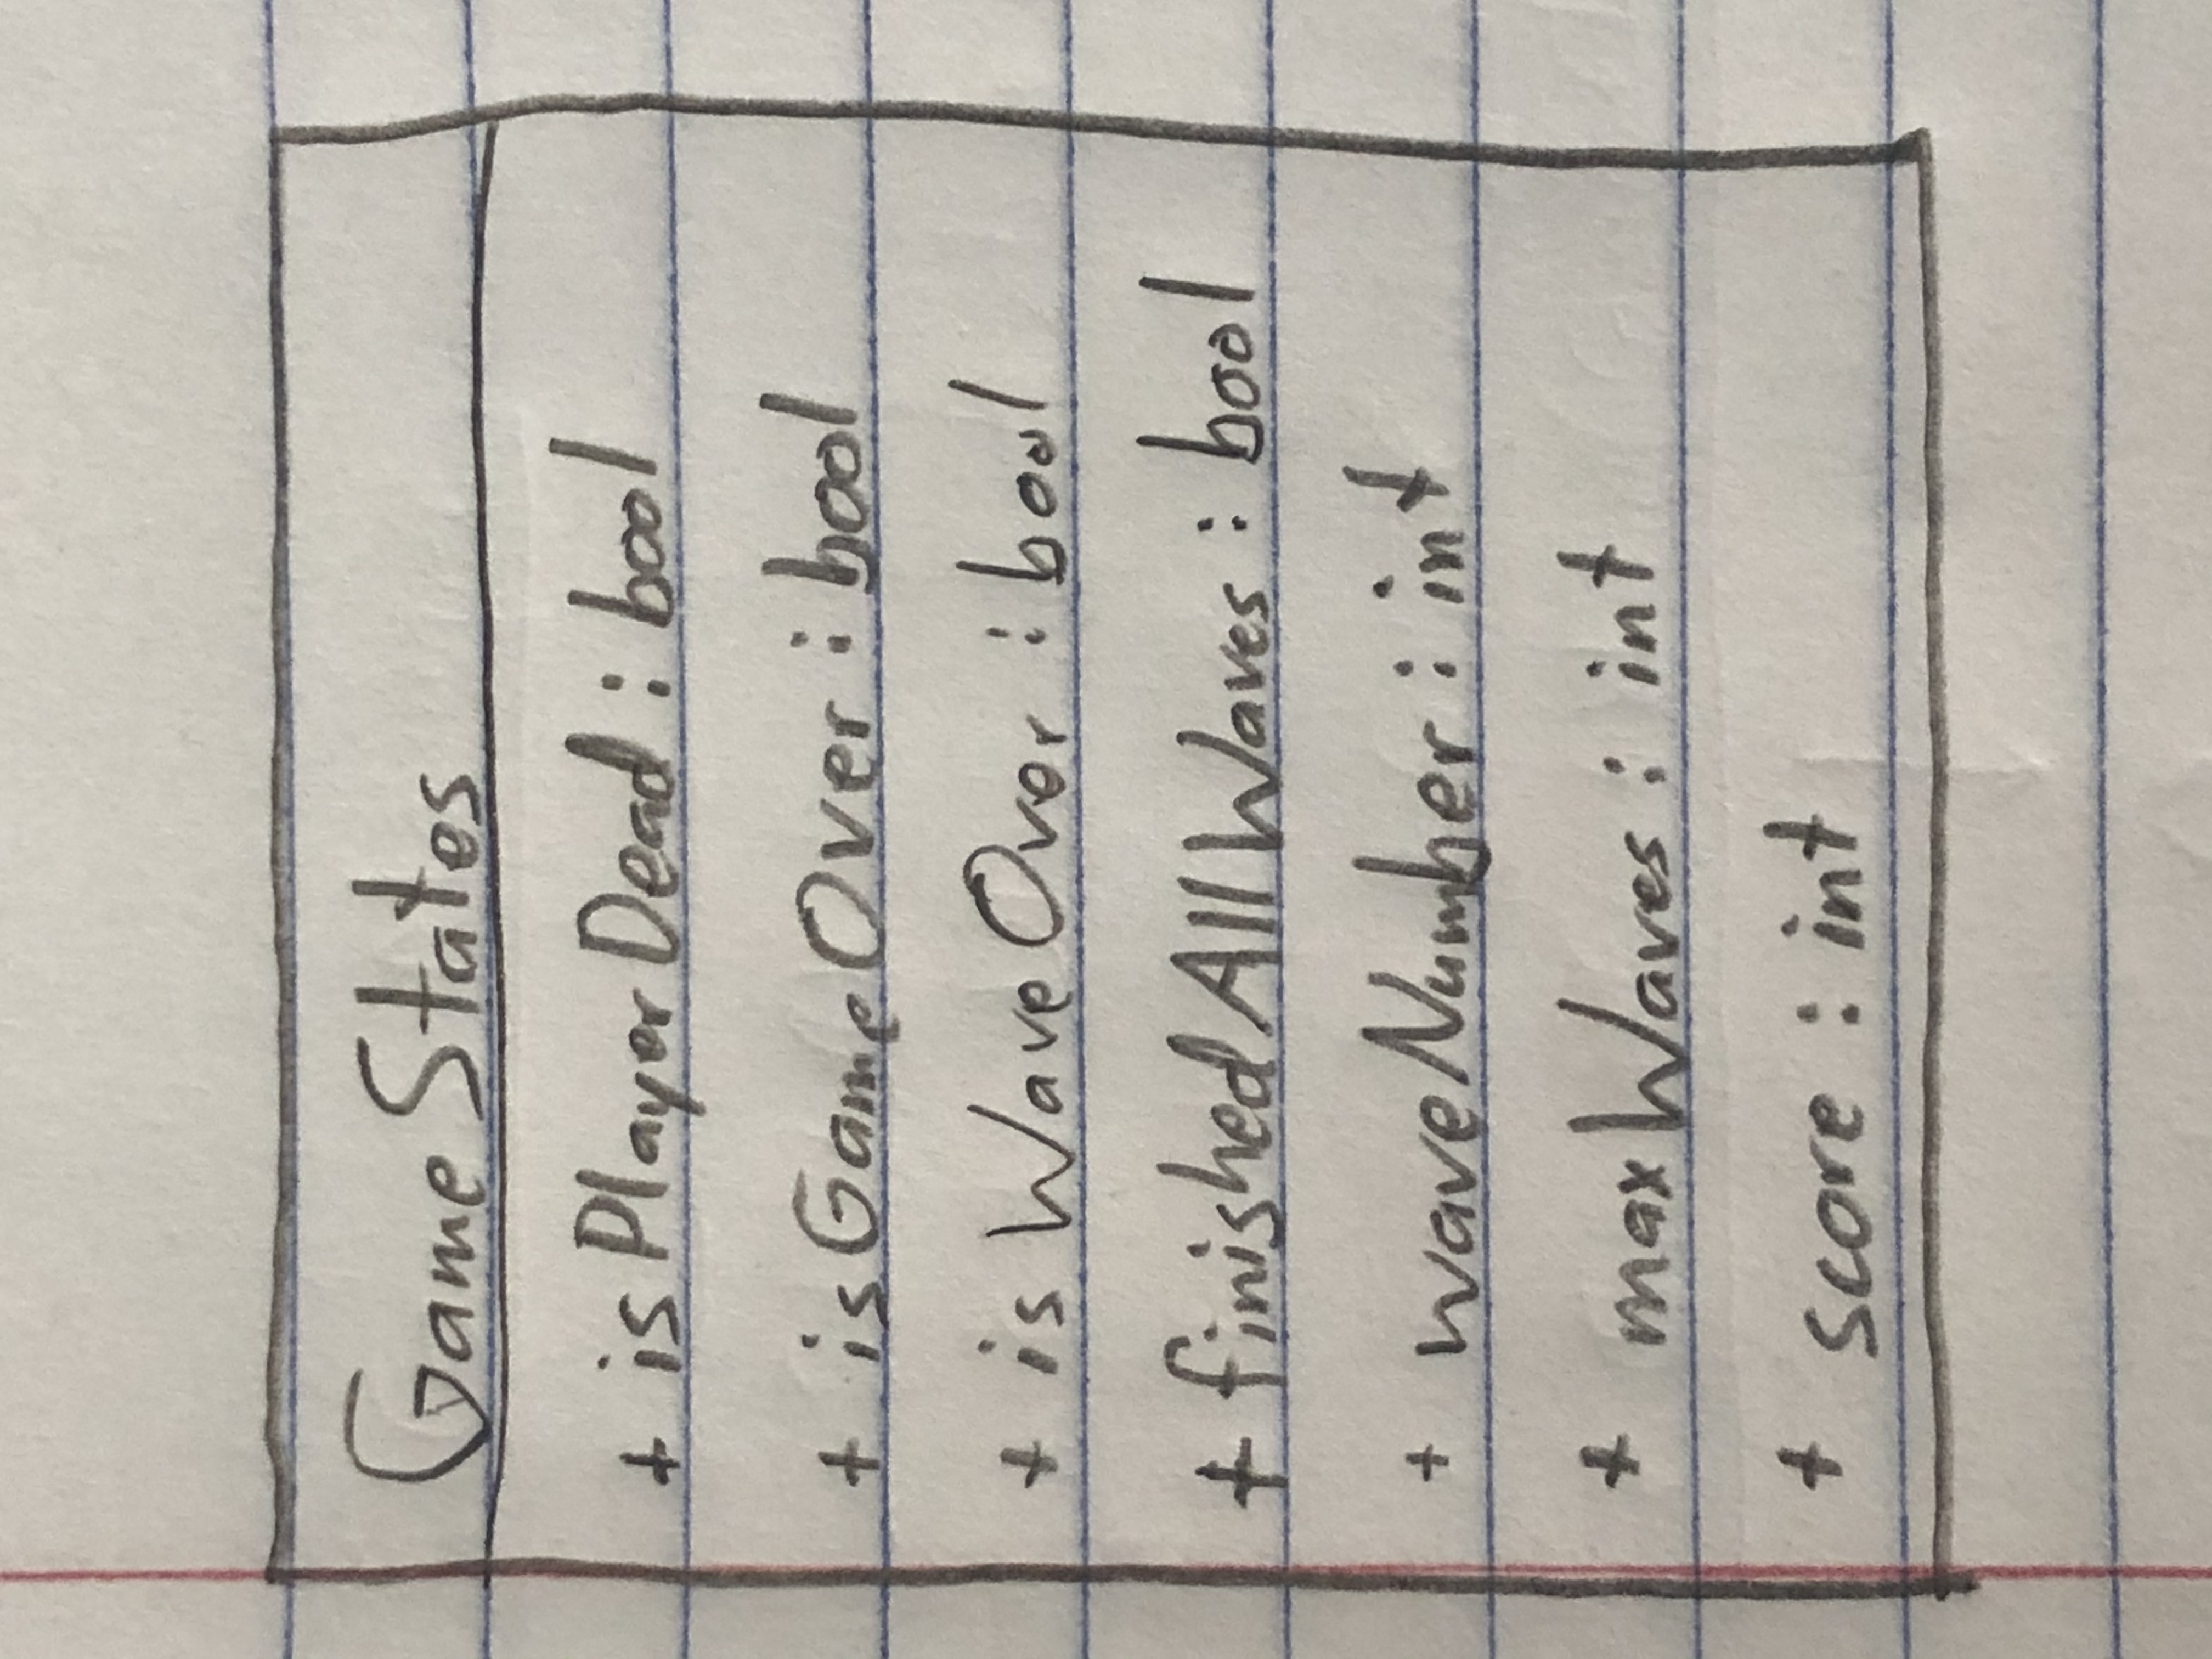 GameStates
+ isPlayerDead : bool
+ isGameOver : bool
+ isWaveOver : bool
+ finishedAllWaves : bool
+ waveNumber : int
+ maxWaves : int
+ score : int